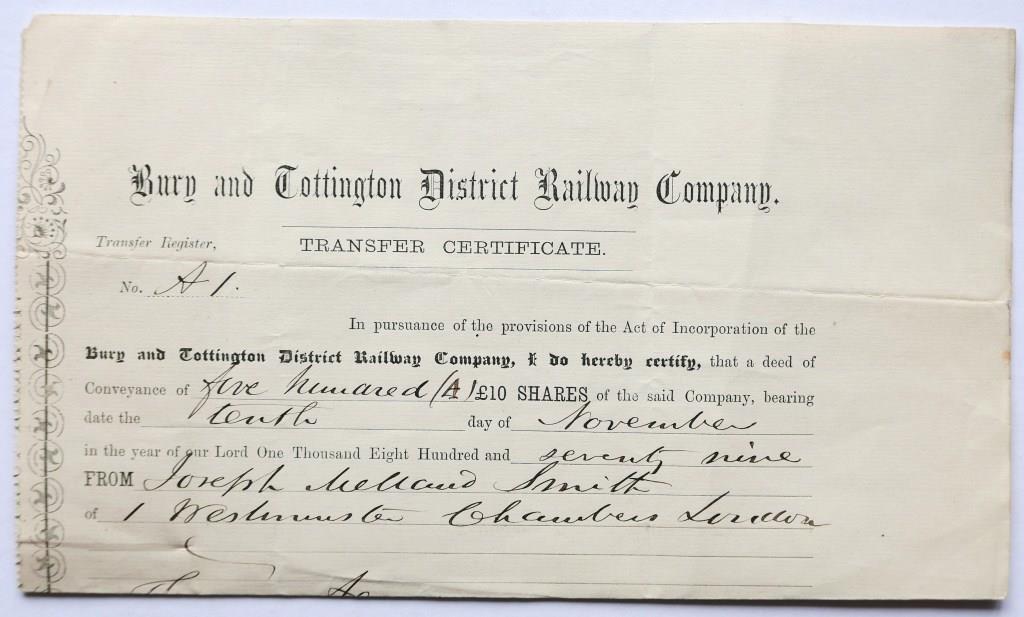 Bury and Tottington District Railway Company.
Transfer Register,
TRANSFER CERTIFICATE.
No. A 1.
In pursuance of the provisions of the Act of Incorporation of the
Bury and Tottington District Railway Company, I do hereby certify, that a deed of
Conveyance of five hundred (A) £10 SHARES of the said Company, bearing
date the tenth day of November
in the year of our Lord One Thousand Eight Hundred and seventy nine
FROM Joseph Melland Smith
of 1 Westminster Chambers London